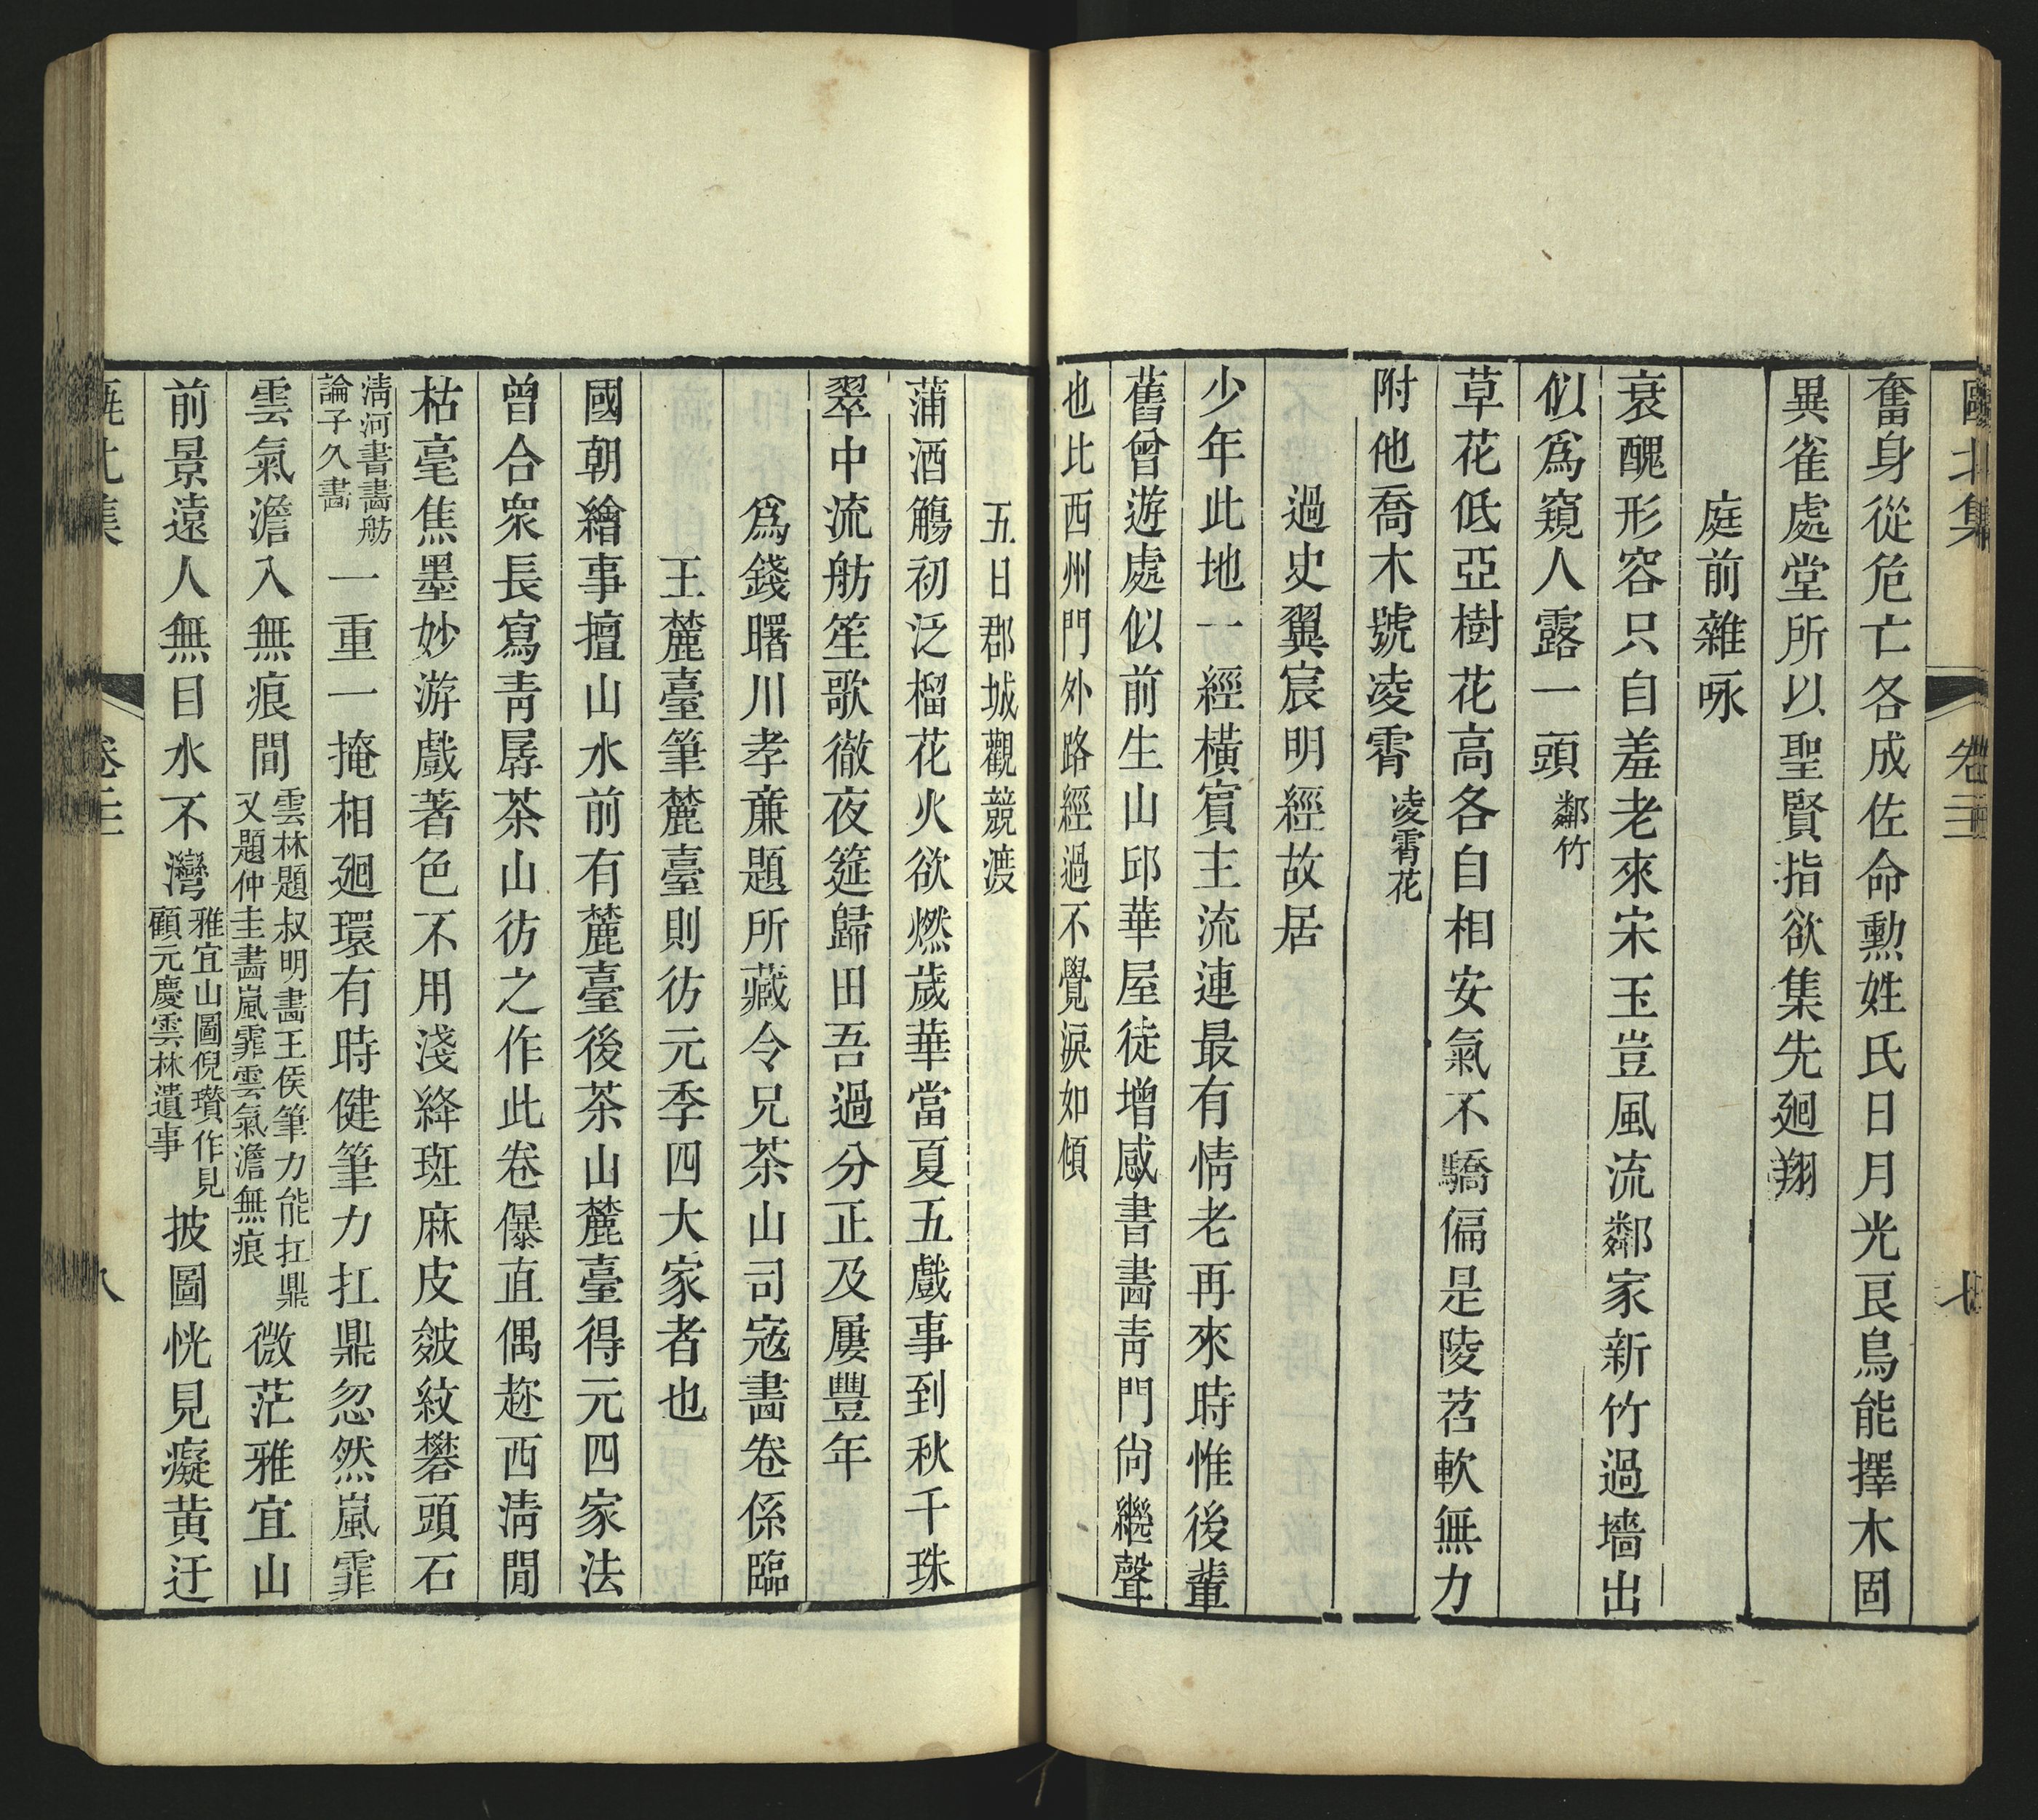 甌北集
卷三
七
奮身從危亡各成佐命勲姓氏日月光良鳥能擇木固
異雀處堂所以聖賢指欲集先廻翔
庭前雜咏
衰醜形容只自羞老來宋玉豈風流鄰家新竹過墻出
似爲窺人露一頭鄰竹
草花低亞樹花高各自相安氣不驕偏是陵苕軟無力
附他喬木號凌霄凌霄花
過史翼宸明經故居
少年此地一經横賓主流連最有情老再來時惟後輩
舊曾遊處似前生山邱華屋徒增感書畵靑門尙繼聲
也比西州門外路經過不覺淚如傾
五日郡城觀競渡
蒲酒觴初泛榴花火欲燃歲華當夏五戲事到秋千珠
翠中流舫笙歌徹夜筵歸田吾過分正及屢豐年
爲錢曙川孝亷題所藏令兄茶山司寇畵卷係臨
王麓臺筆麓臺則彷元季四大家者也
國朝繪事擅山水前有麓臺後茶山麓臺得元四家法
曾合衆長寫靑孱茶山彷之作此卷儤直偶趂西淸閒
枯毫焦墨妙游戲著色不用淺絳斑麻皮皴紋礬頭石
淸河書畵舫
論子久畵
一重一掩相廻環有時健筆力扛鼎忽然嵐霏
雲氣澹入無痕間
雲林題叔明畵王侯筆力能扛鼎
又題仲圭畵嵐霏雲氣澹無痕
微茫雅宜山
前景遠人無目水不灣
雅宜山圖倪瓚作見
顧元慶雲林遺事
披圖恍見癡黄迂
八